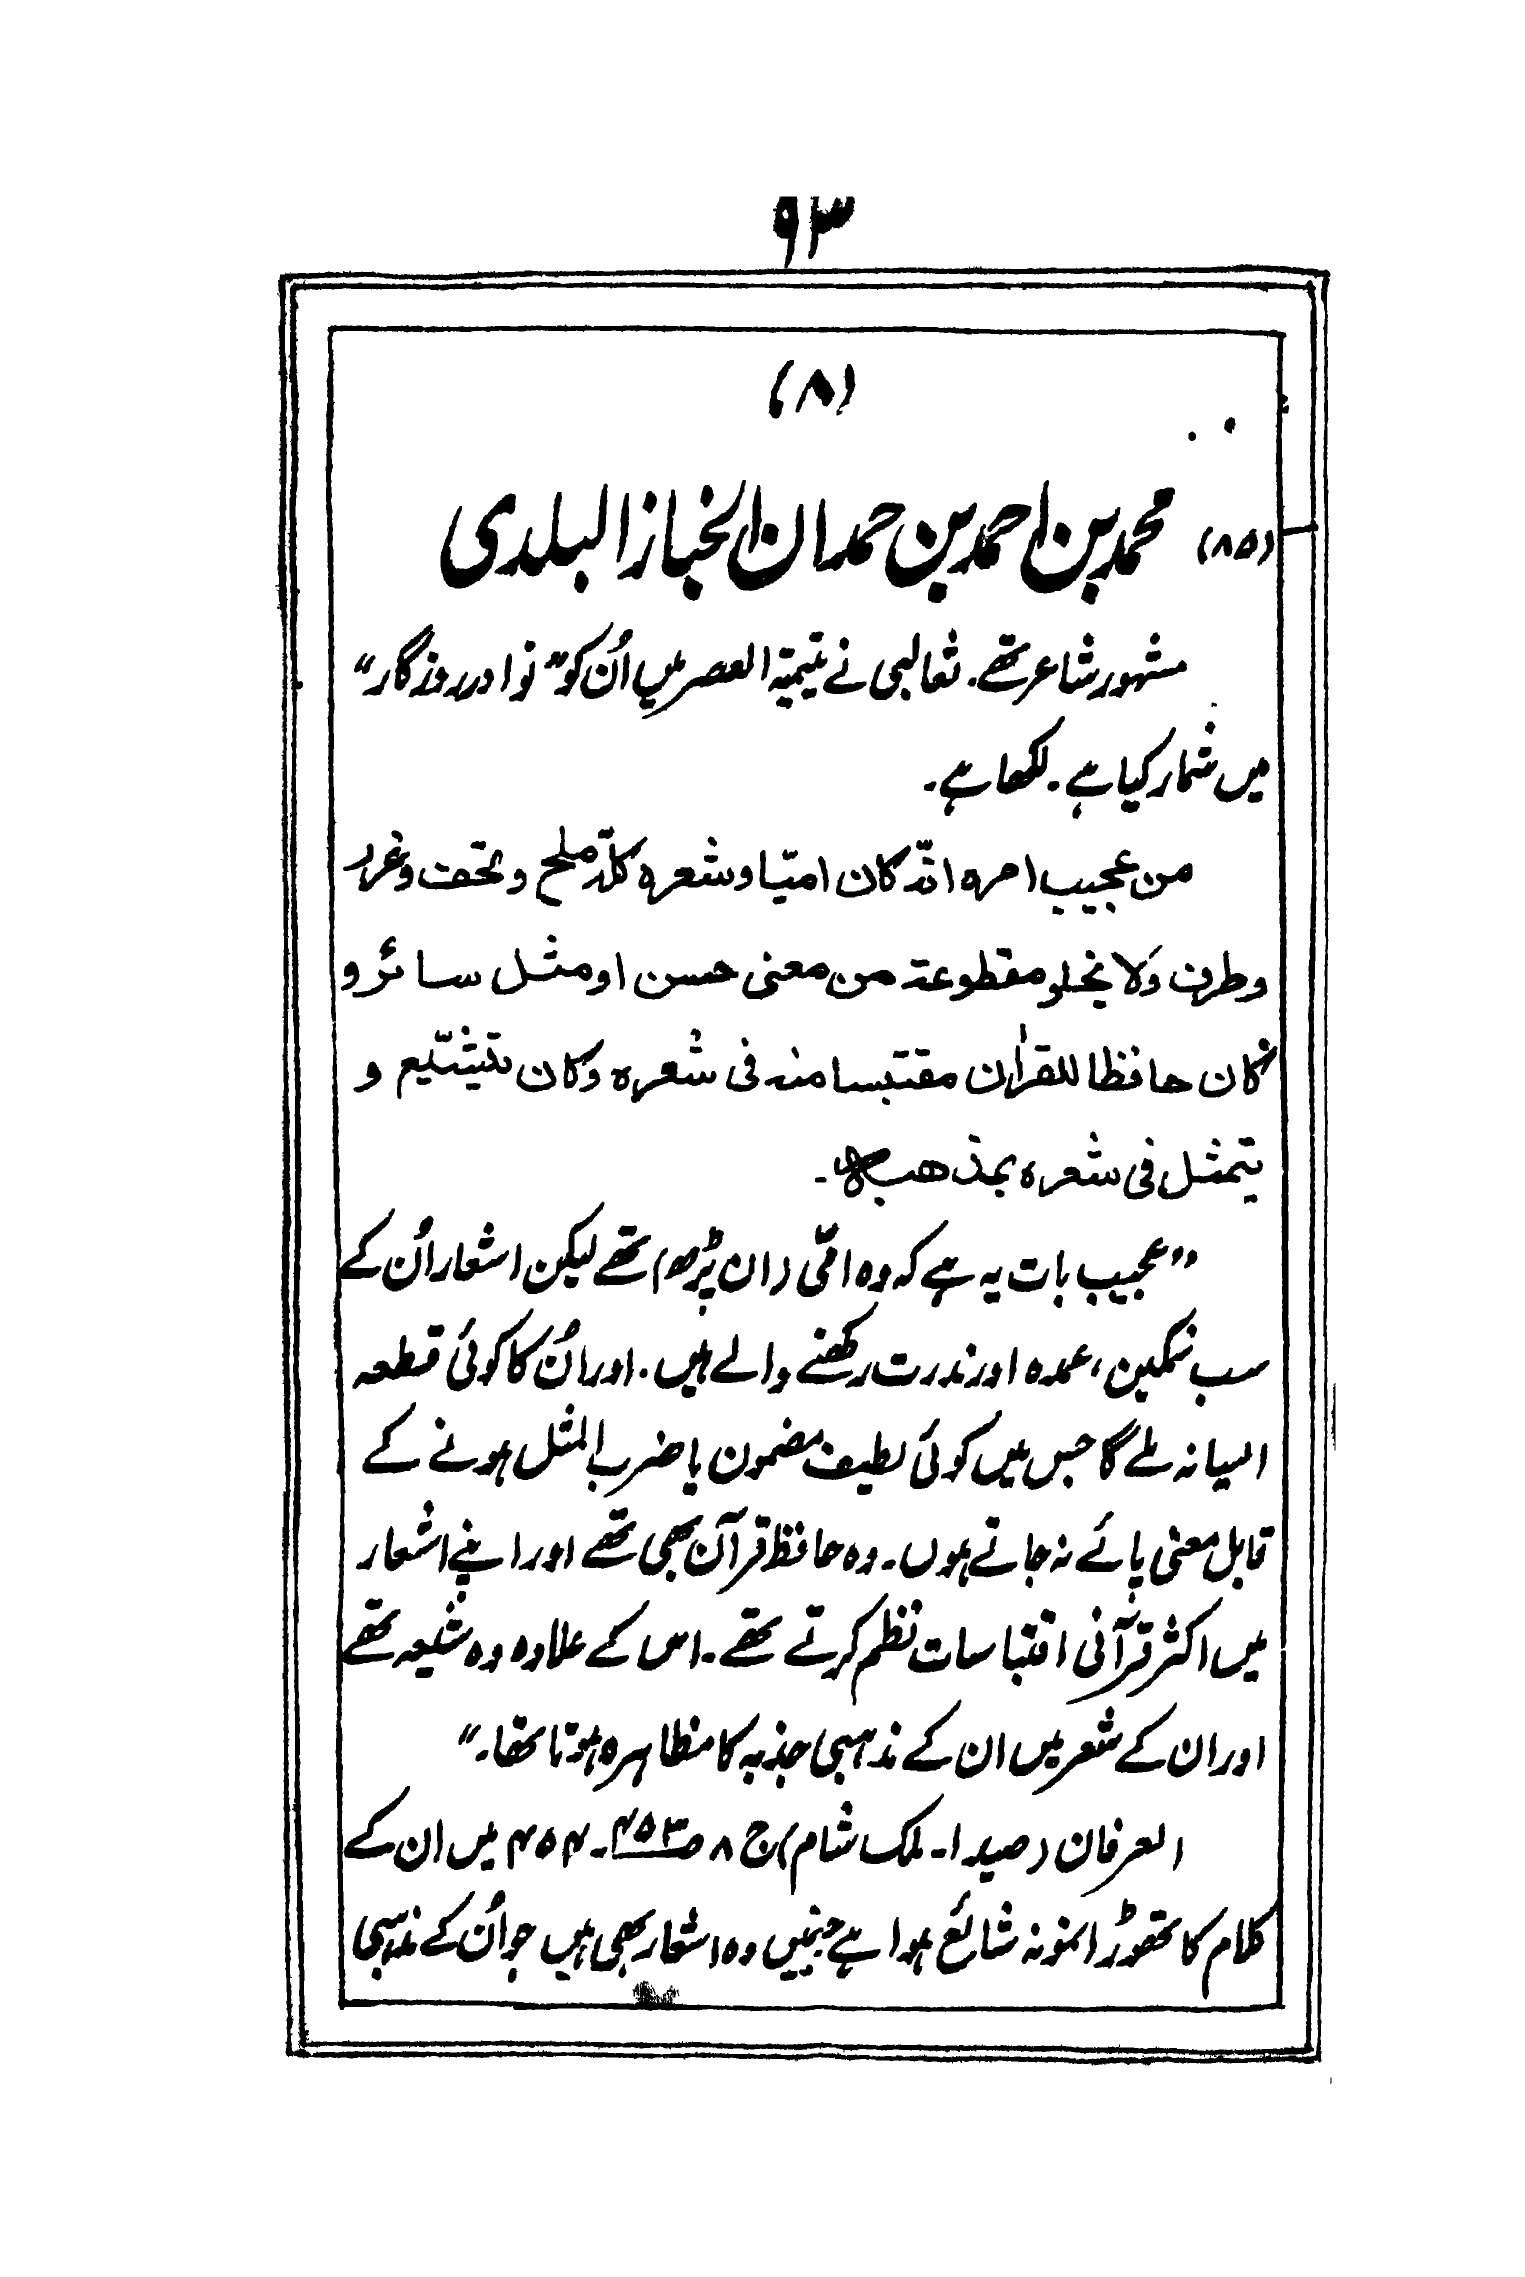 ۹۳
(۸)
(۸۵) محمد بن احمد بن حمدان الخباز البلدی
مشہور شاعر تھے۔ ثعالبی نے یتیمۃ العصر میں اُن کو ”نوادر روزگار“
میں شمار کیا ہے۔ لکھا ہے۔
من عجیب امرہ انّہ کان امیّا وشعرہ کلّہ ملح وتحف وغرر
وطرف وَلا یخلو مقطوعۃ من معنی حسن او مثل سائر و
کان حافظا للقراٰن مقتبسا منہ فی شعرہ وکان یتشیّع و
یتمثل فی شعرہ بمذھبہ۔
”عجیب بات یہ ہے کہ وہ امّی (ان پڑھ) تھے لیکن اشعار اُن کے
سب نمکین، عمدہ اور ندرت رکھنے والے ہیں۔ اور اُن کا کوئی قطعہ
ایسا نہ ملے گا جس میں کوئی لطیف مضمون یا ضرب المثل ہونے کے
قابل معنی پائے نہ جاتے ہوں۔ وہ حافظ قرآن بھی تھے اور اپنے اشعار
میں اکثر قرآنی اقتباسات نظم کرتے تھے۔ اس کے علاوہ وہ شیعہ تھے
اور ان کے شعر میں ان کے مذہبی جذبہ کا مظاہرہ ہوتا تھا۔“
العرفان (صیدا۔ ملک شام) ج ۸ ص۴۵۳۔ ۴۵۴ میں ان کے
کلام کا تھوڑا نمونہ شائع ہوا ہے جنمیں وہ اشعار بھی ہیں جو اُن کے مذہبی